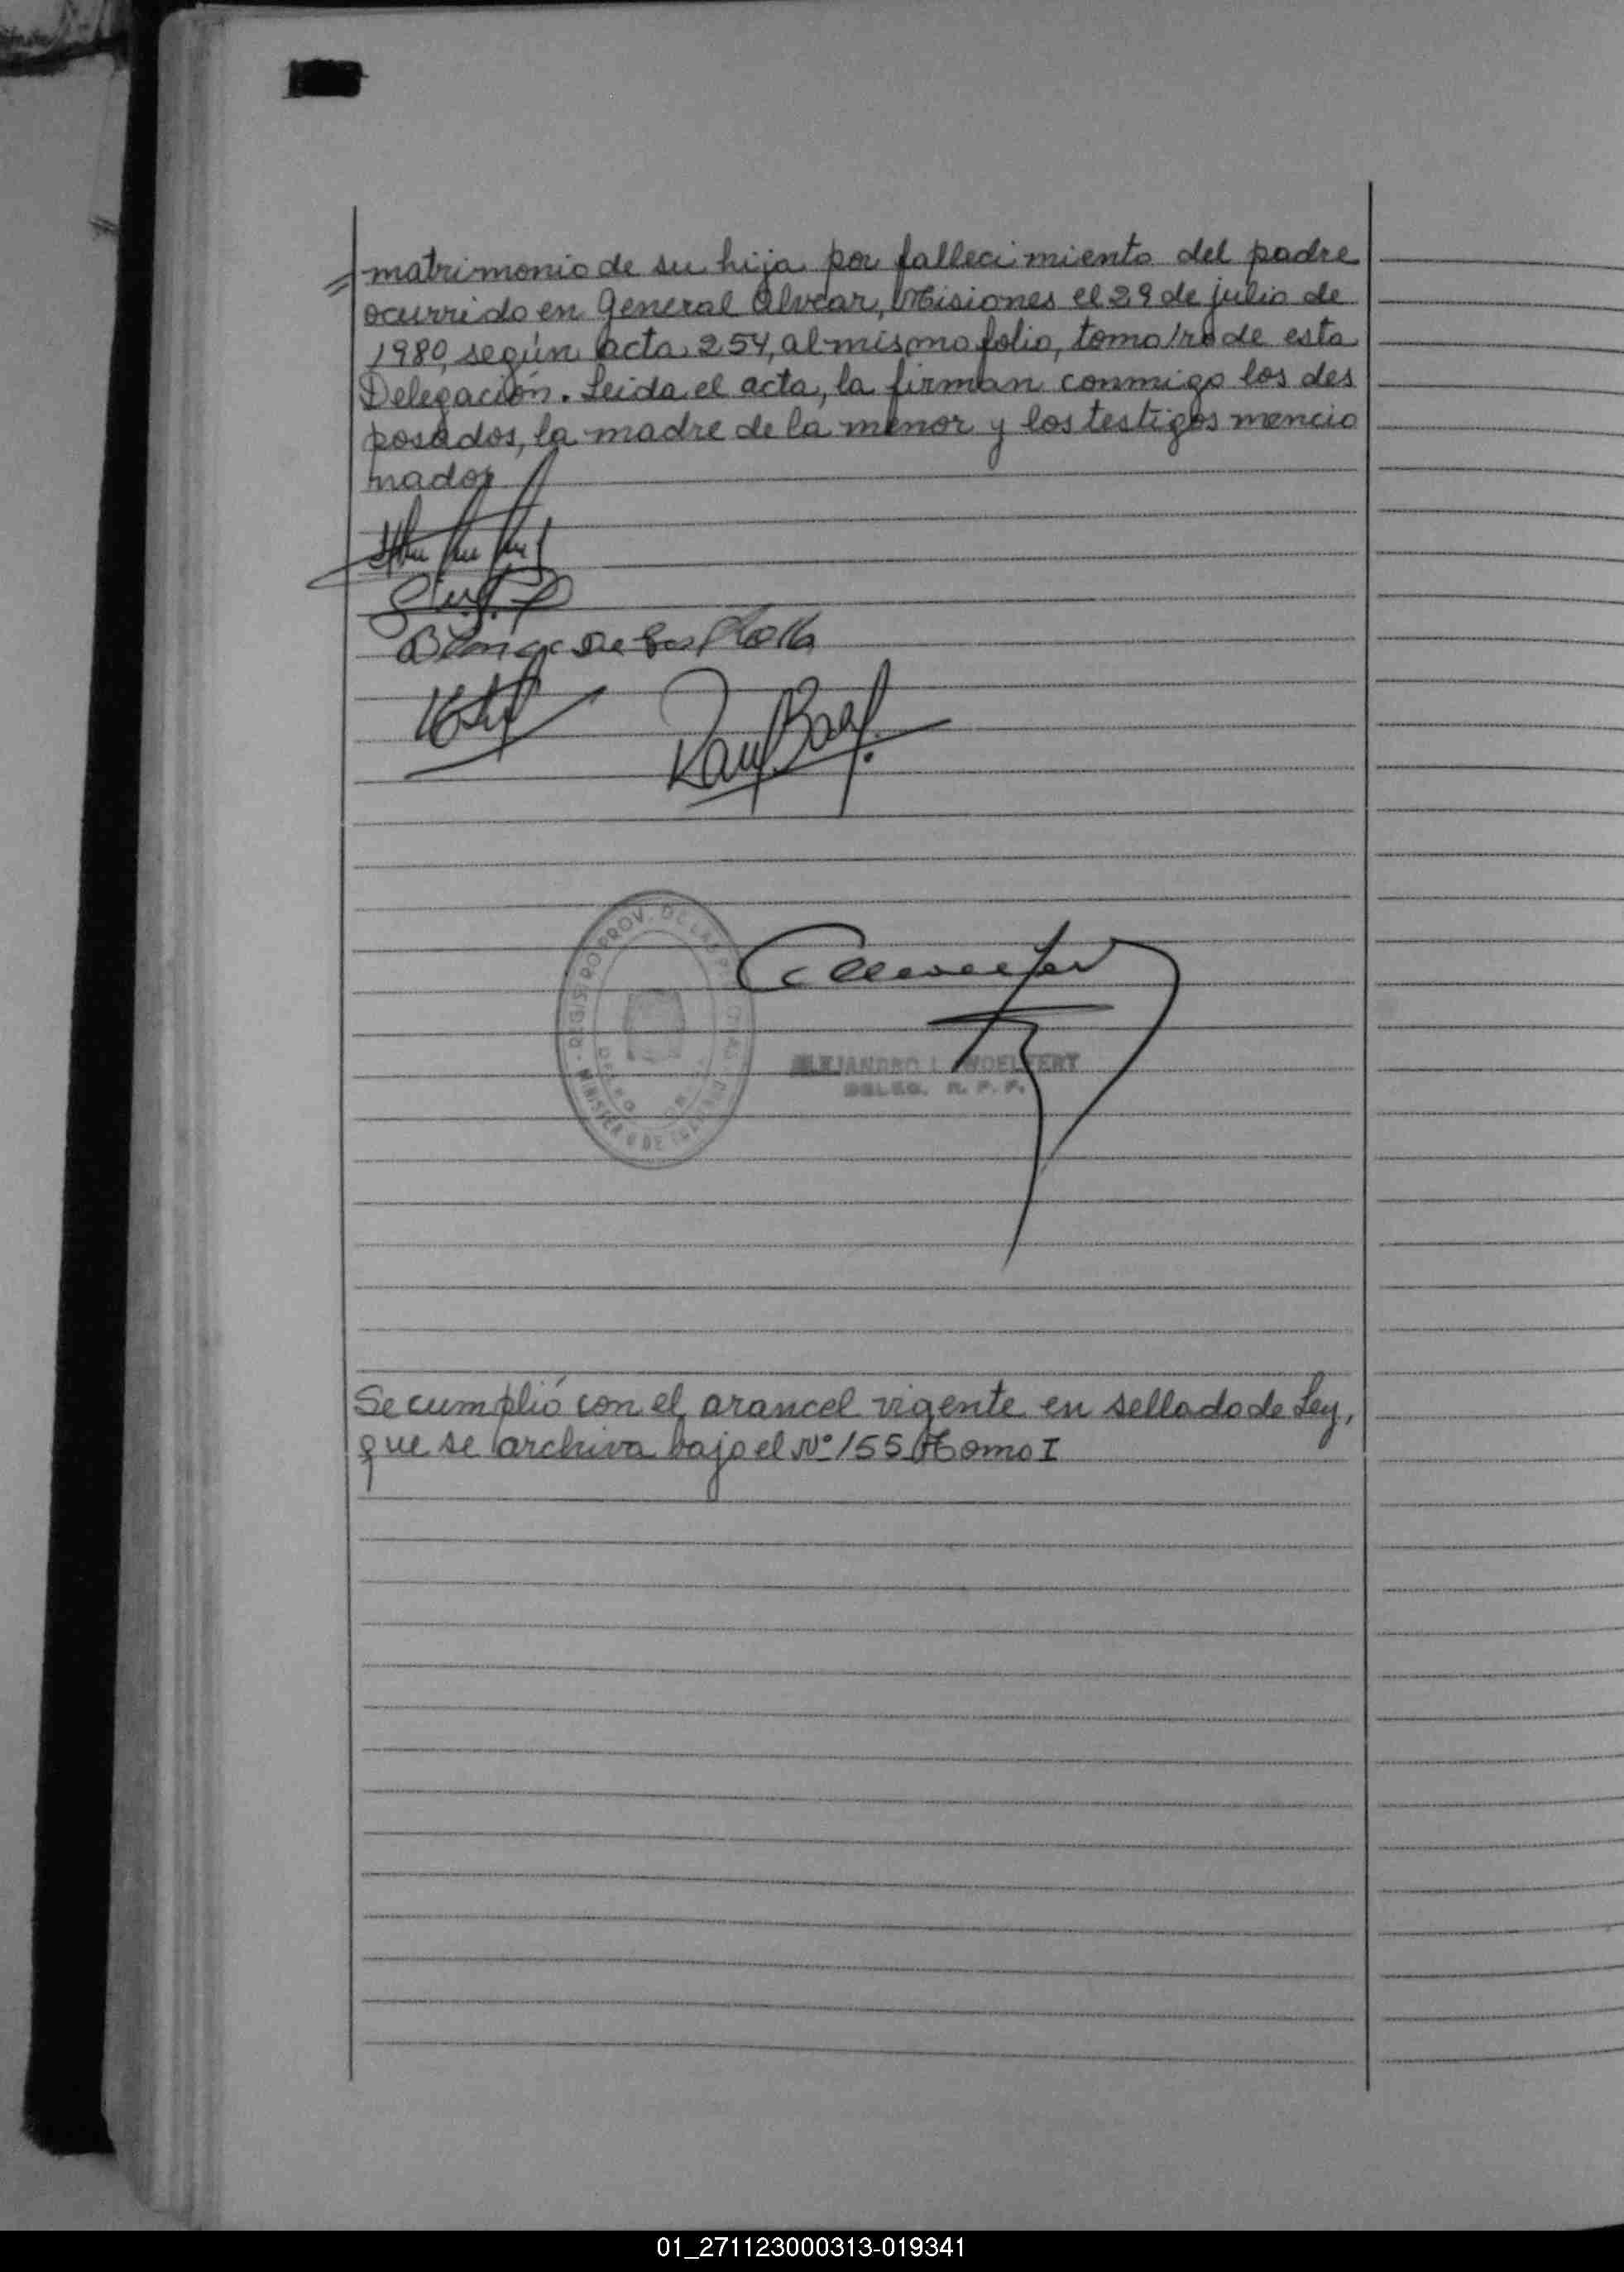 matrimonio de su hija por fallecimiento del padre
ocurrido en General Alvear, Misiones el 29 de julio de
1980, según acta 254, al mismo folio, tomo 1ro de esta
Delegación. Leida el acta, la firman conmigo los des
posados, la madre de la menor y los testigos mencio
nados
REGISTRO PROV. DE LAS
MINISTERIO DE
ALEJANDRO L. WOELFERT
DELEG. R. P. P.
Se cumplió con el arancel vigente en sellado de Ley,
que se archiva bajo el Nº 155 tomo I
01_271123000313-019341